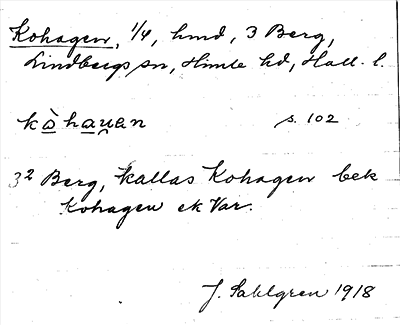 Kohagen, 1/4, hmd, 3 Berg,
Lindbergs sn, Himle hd, Hall. l.
kòhau̯an s. 102
3² Berg, kallas Kohagen bek
Kohagen ek Var.
J. Sahlgren 1918